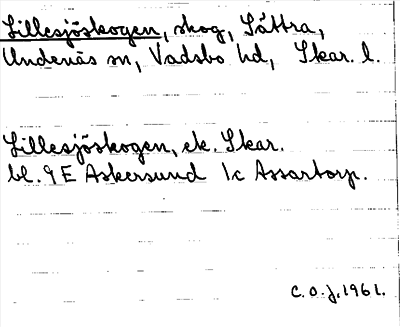 Lillesjöskogen, skog, Sättra,
Undenäs sn, Vadsbo hd, Skar. l.
Lillesjöskogen, ek. Skar.
bl. 9 E Askersund 1c Assartorp.
C.O.J. 1961.